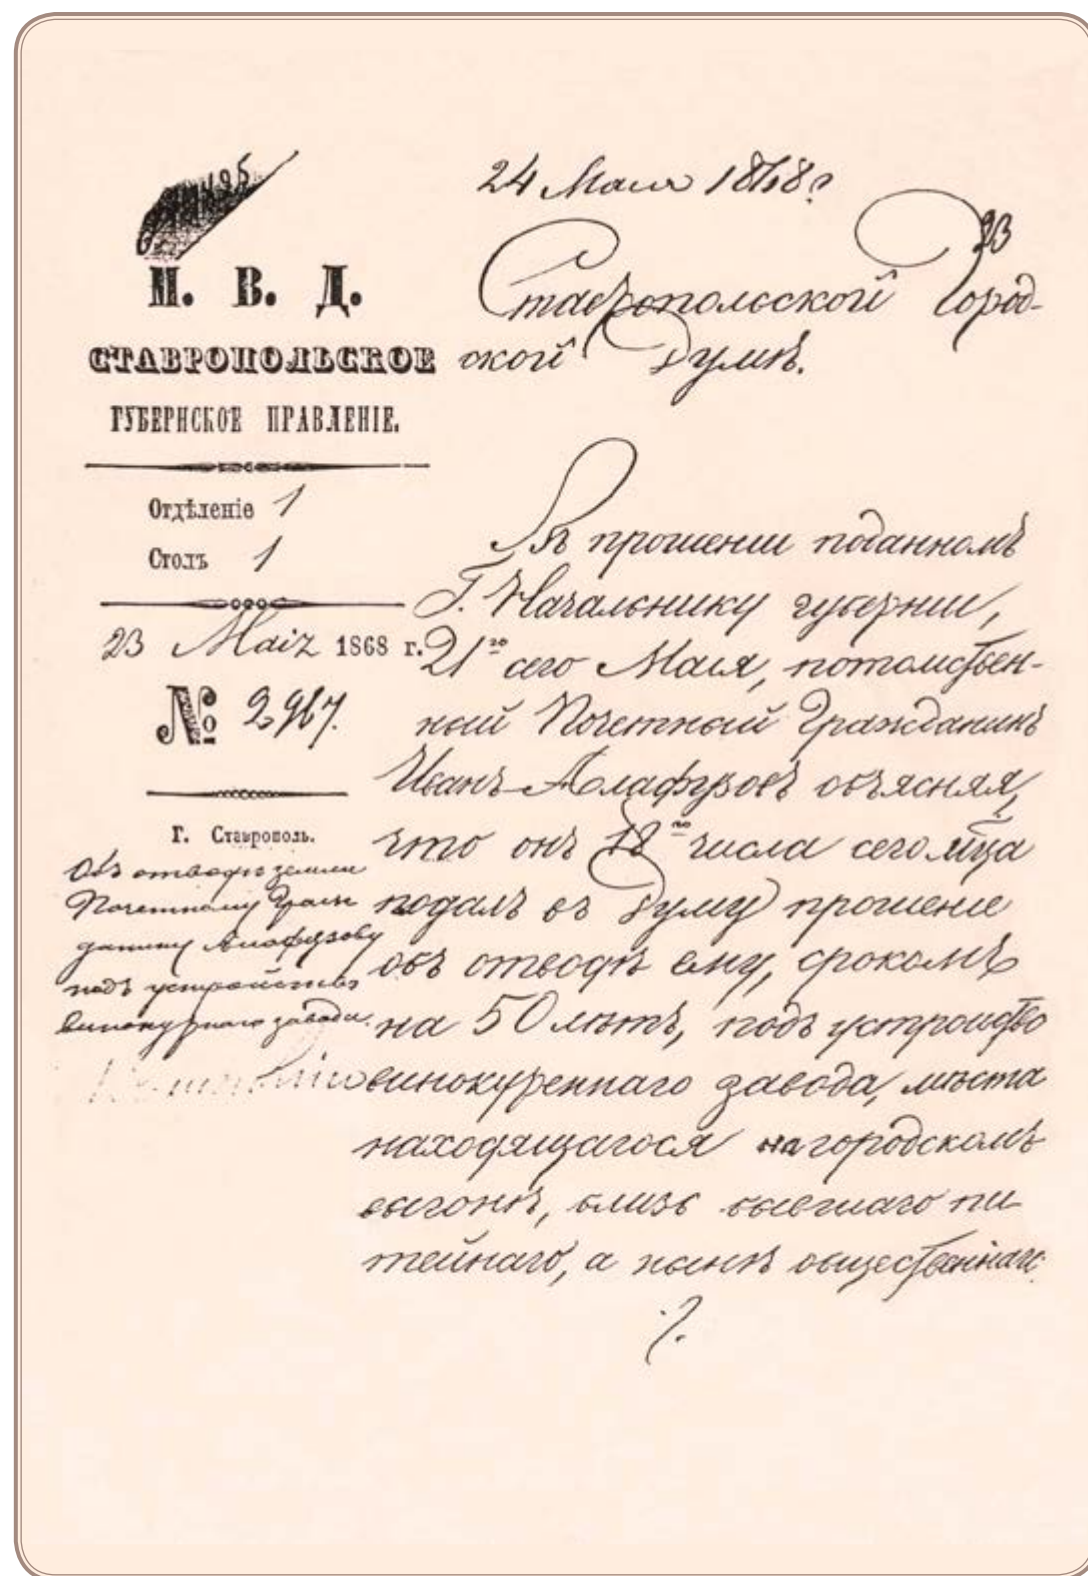 24 Мая 1868 г
23
М. В. Д.
СТАВРОПОЛЬСКОЕ
ГУБЕРНСКОЕ ПРАВЛЕНІЕ.
Отдѣленіе 1
Столъ 1
23 Маія 1868 г.
№ 2967.
Г. Ставрополь.
Объ отводѣ земли
Почетному Граж
данину Алафузову
подъ устройство
винокурнаго завода.
Ставропольской Город-
ской Думѣ.
Въ прошении поданномъ
Г. Начальнику губернии,
21го сего Мая, потомствен-
ный Почетный Гражданинъ
Иванъ Алафузовъ объясняя,
что онъ 18го числа сего мца
подалъ въ Думу прошение
объ отводѣ ему, срокомъ
на 50 лѣтъ, подъ устройство
винокуреннаго завода, мѣста
находящагося на городскомъ
выгонѣ, близь бывшаго пи-
тейнаго, а нынѣ общественнаго
·/.